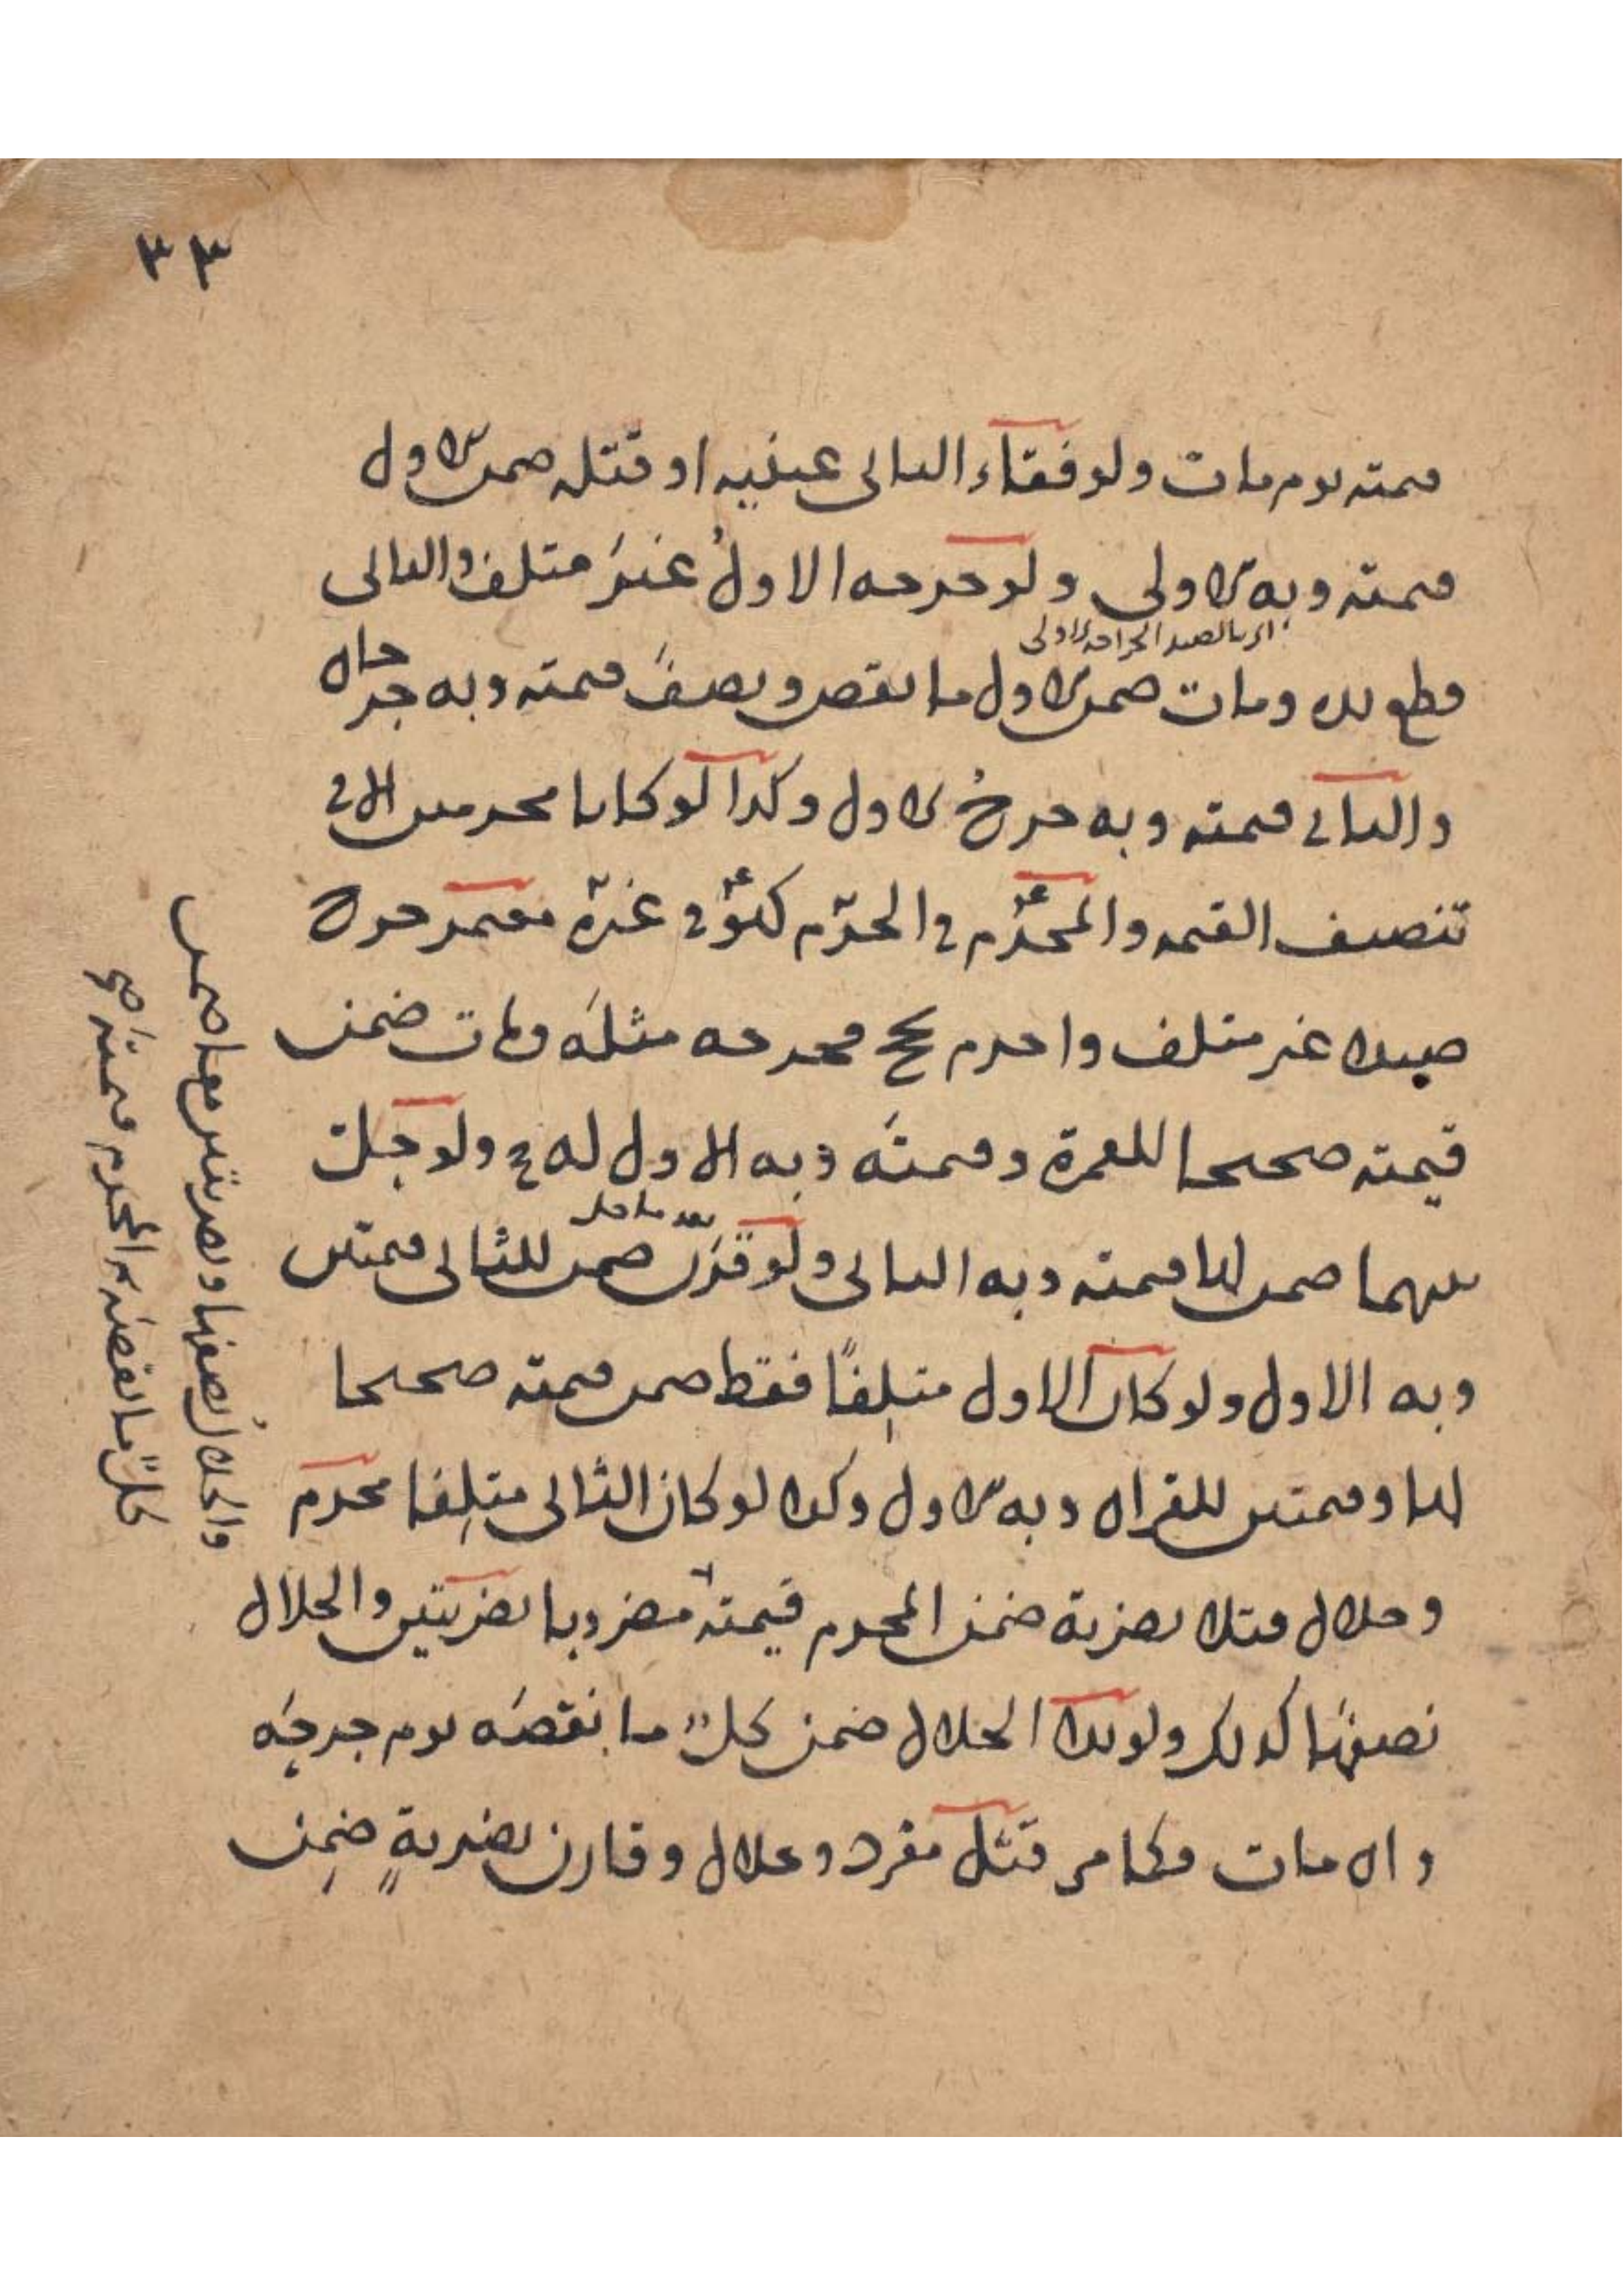 ٣٣
قيمته يوم مات ولو فقاء الثاني عينيه او قتله ضمن الاول
قيمته وبه الاولى ولو جرحه الاول غير متلف والثاني
اي بالصيد الجراحة الاولى
قطع يده ومات ضمن الاول ما نقص ونصف قيمته وبه جرحان
والثاني قيمته وبه جرح الاول وكذا لو كانا محرمين الا في
تنصيف القيمة والمحرم في الحرم كهو في غيره معتمر جرح
صيدا غير متلف واحرم بحج فجرحه مثله ومات ضمن
قيمته صحيحا للعمرة وقيمته وبه الاول له ولو حل
بينهما ضمن لها قيمته وبه الثاني ولو قرن ضمن للثاني قيمتين
بعد ما حل
وبه الاول ولو كان الاول متلفا فقط ضمن قيمته صحيحا
لها وقيمتين للقران وبه الاول وكذا لو كان الثاني متلفا محرم
وحلال قتلا بضربة ضمن المحرم قيمته مضروبا بضربتين والحلال
نصفها كذلك ولو بدا الحلال ضمن كل ما نقصه يوم جرحه
وان مات فكما مر قتل مفرد وحلال وقارن بضربة ضمن
والحلال نصفها وبضربتين معا ضمن
كل ما نقصه المحرم قيمته